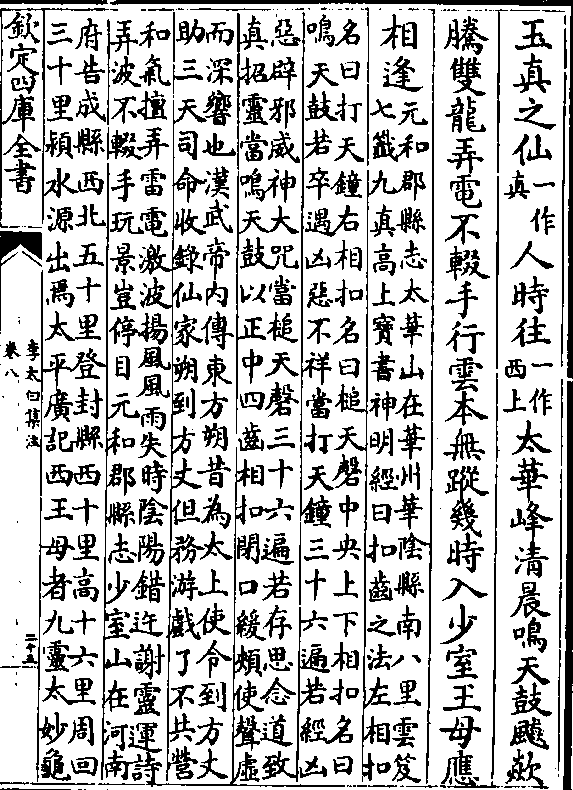 玉真之仙一作真人時往一作西上太華峰清晨鳴天鼓飈欻
騰雙龍弄電不輟手行雲本無蹤幾時入少室王母應
相逢元和郡縣志太華山在華州華陰縣南八里雲笈
七籖九真高上寳書神明經曰扣齒之法左相扣
名曰打天鐘右相扣名曰槌天磬中央上下相扣名曰
鳴天鼓若卒遇凶惡不祥當打天鐘三十六遍若經凶
惡辟邪威神大咒當槌天磬三十六遍若存思念道致
真招靈當鳴天鼓以正中四齒相扣閉口緩頰使聲虛
而深響也漢武帝内傳東方朔昔為太上使令到方丈
助三天司命收錄仙家朔到方丈但務游戲了不共營
和氣擅弄雷電激波揚風風雨失時陰陽錯迕謝靈運詩
弄波不輟手玩景豈停目元和郡縣志少室山在河南
府告成縣西北五十里登封縣西十里高十六里周回
三十里潁水源出焉太平廣記西王母者九靈太妙龜
欽定四庫全書
李太白集注
卷八
二十五